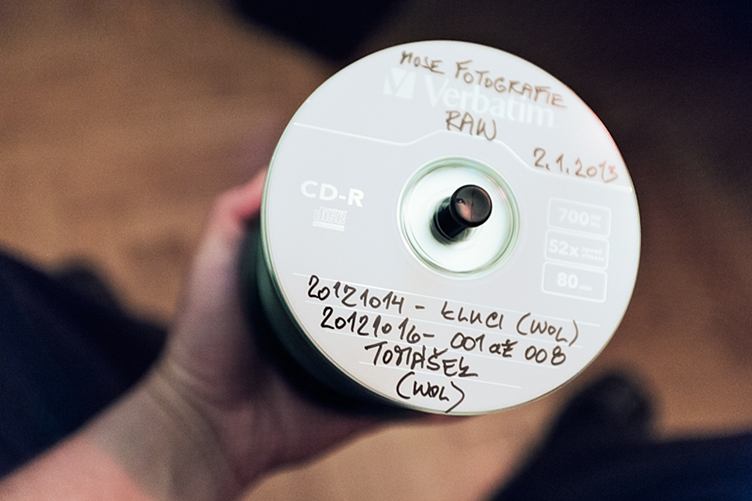 MOJE FOTOGRAFIE
Verbatim
RAW
2.1.2013
CD-R
700
52x
80
20121014 - KLUCI (WOL)
20121016 - 001 až 008
TOMÁŠEK
(WOL)